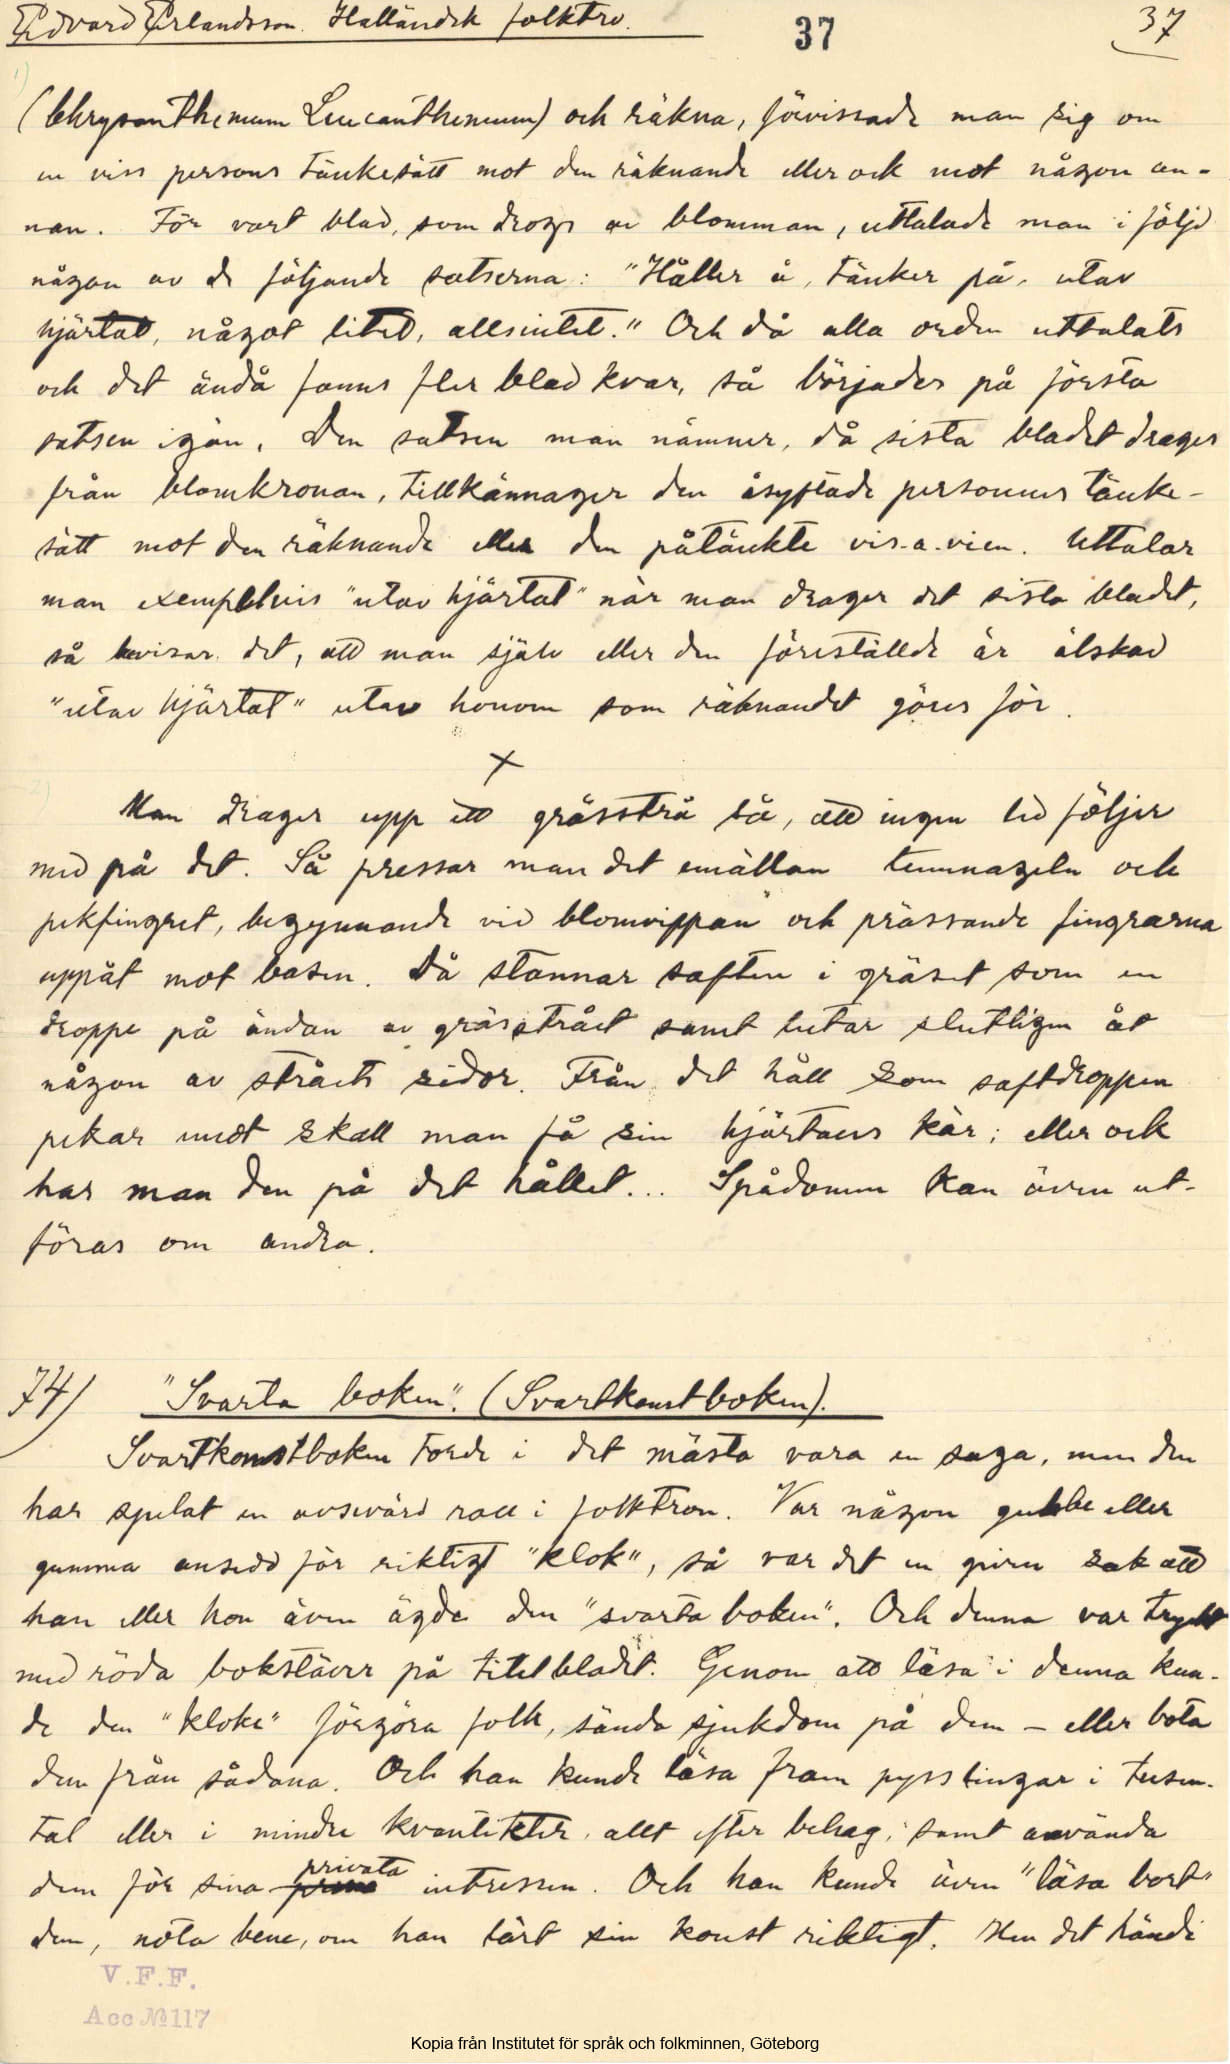 Edvard Erlandsson. Halländsk folktro.
37
37
1)
(Chrysanthemum Leucanthemum) och räkna, förvissade man sig om
en viss persons tänkesätt mot den räknande eller ock mot någon an-
nan. För vart blad, som drogs av blomman, uttalade man i följd
någon av de följande satserna: "Håller å, tänker på, utav
hjärtat, något litet, allsintet." Och då alla orden uttalats
och det ändå fanns fler blad kvar, så börjades på första
satsen igän. Den satsen man nämner, då sista bladet drages
från blomkronan, tillkännager den åsyftade personens tänke-
sätt mot den räknande eller den påtänkte vis-a-vien. Uttalar
man exempelvis "utav hjärtat" när man drager det sista bladet,
så bevisar det, att man själv eller den föreställde är älskad
"utav hjärtat" utav honom som räknandet göres för.
x
2)
Man drager upp ett grässtrå så, att ingen led följer
med på det. Så pressar man det emällan tumnageln och
pekfingret, begynnande vid blomvippan och prässande fingrarna
uppåt mot basen. Då stannar saften i gräset som en
droppe på ändan av grässtrået samt lutar slutligen åt
någon av stråets sidor. Från det håll som saftdroppen
pekar emot skall man få sin hjärtans kär; eller ock
har man den på det hållet... Spådomen kan även ut-
föras om andra.
74)
"Svarta boken". (Svartkonstboken).
Svartkonstboken torde i det mästa vara en saga, men den
har spelat en avsevärd roll i folktron. Var någon gubbe eller
gumma ansedd för riktigt "klok", så var det en given sak att
han eller hon även ägde den "svarta boken". Och denna var tryckt
med röda bokstäver på titelbladet. Genom att läsa i denna kun-
de den "kloke" förgöra folk, sända sjukdom på dem - eller bota
dem från sådana. Och han kunde läsa fram pysslingar i tusen-
tal eller i mindre kvantiteter, allt efter behag, samt använda
dem för sina privata intressen. Och han kunde även "läsa bort"
dem, nota bene, om han lärt sin konst riktigt. Men det hände
V.F.F.
Acc № 117
Kopia från Institutet för språk och folkminnen, Göteborg